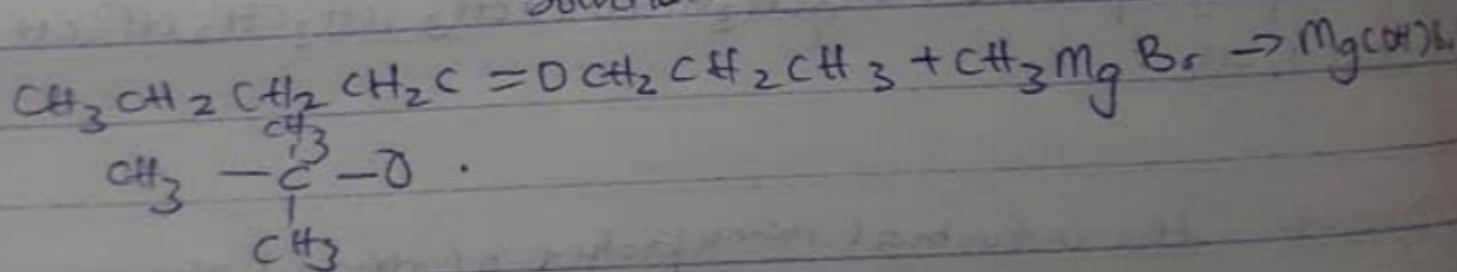 CH3CH2CH2CH2C=OCH2CH2CH3+CH3MgBr→Mg(OH)
CH3
CH3-C-O.
CH3